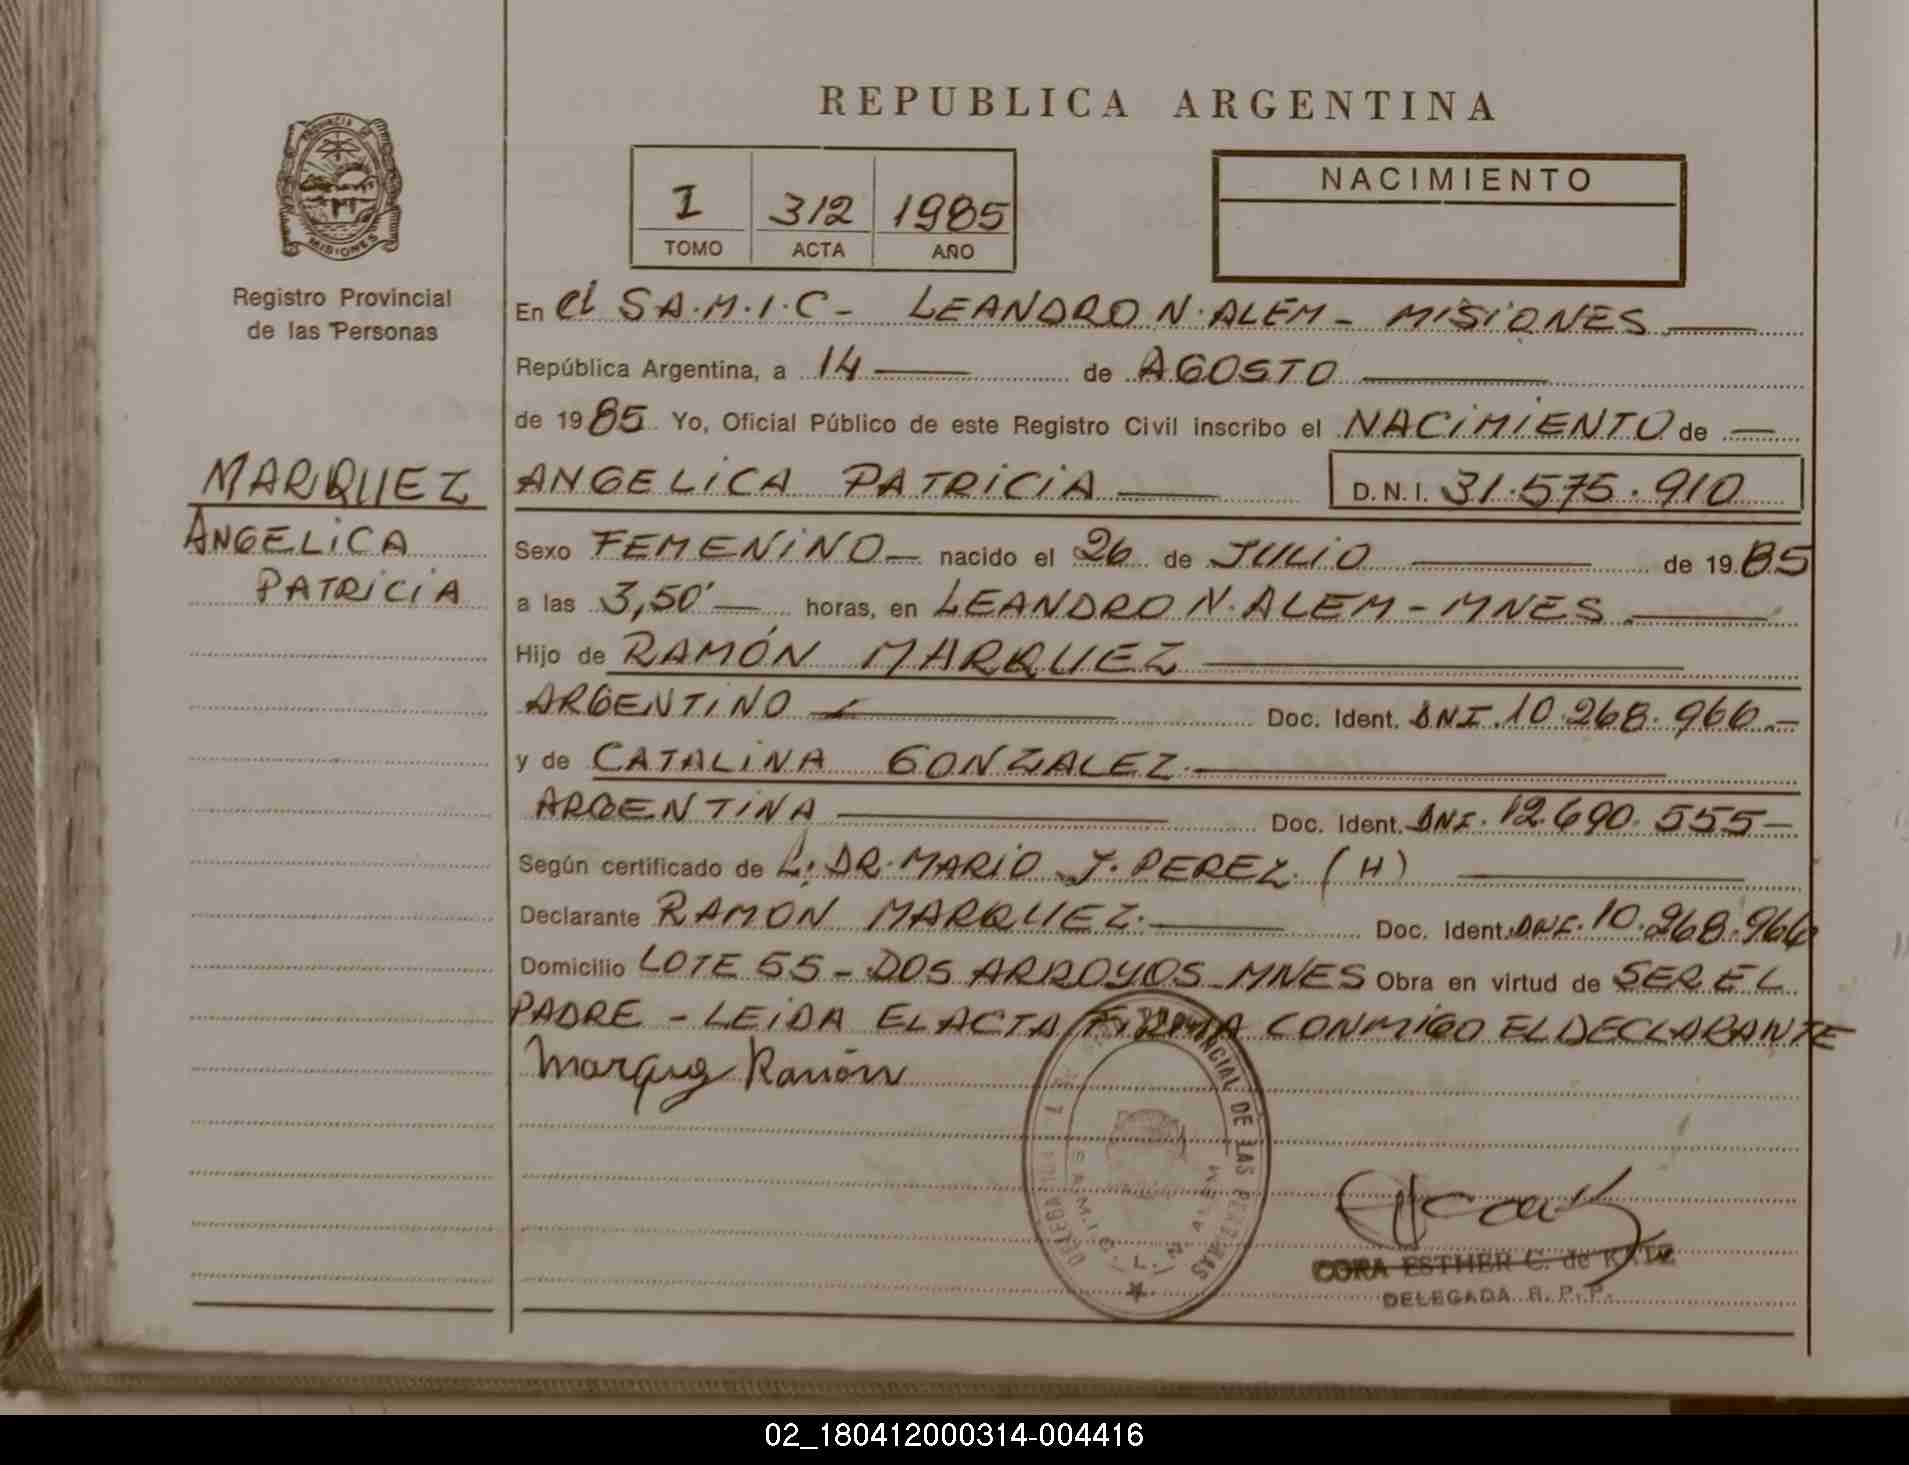 REPUBLICA ARGENTINA
PROVINCIA DE
MISIONES
Registro Provincial
de las Personas
I 312 1985
TOMO ACTA AÑO
NACIMIENTO
En el S.A.M.I.C - LEANDRO N. ALEM - MISIONES
República Argentina, a 14 de AGOSTO
de 1985 Yo, Oficial Público de este Registro Civil inscribo el NACIMIENTO de
MARQUEZ
ANGELICA
PATRICIA
ANGELICA PATRICIA D.N.I. 31.575.910
Sexo FEMENINO nacido el 26 de JULIO de 1985
a las 3,50' horas, en LEANDRO N. ALEM - MNES
Hijo de RAMÓN MARQUEZ
ARGENTINO Doc. Ident. DNI. 10.268.966.-
y de CATALINA GONZALEZ.
ARGENTINA Doc. Ident. DNI. 12.690.555-
Según certificado de L. DR. MARIO J. PEREZ. (H)
Declarante RAMON MARQUEZ. Doc. Ident. DNI. 10.268.966
Domicilio LOTE 55 - DOS ARROYOS - MNES Obra en virtud de SER EL
PADRE - LEIDA EL ACTA FIRMA CONMIGO EL DECLARANTE
Ramón
PROVINCIAL DE LAS PERSONAS
S.A.M.I.C. L. N. ALEM
CORA ESTHER C. de KATZ
DELEGADA R. P. P.
02_180412000314-004416